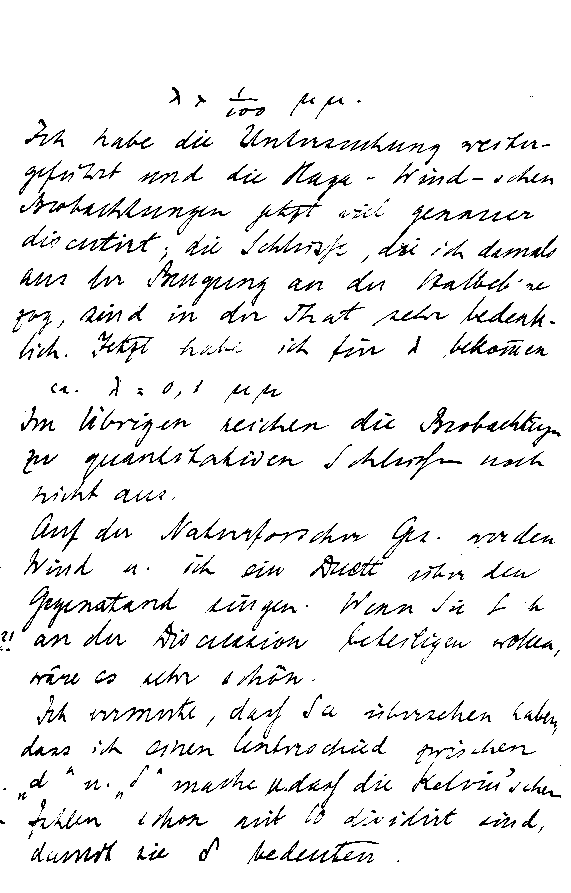 λ > 1/100 μμ.
Ich habe die Untersuchung weiter-
geführt und die Haga-Wind-schen
Beobachtungen jetzt viel genauer
discutirt; die Schlüsse, die ich damals
aus der Beugung an der Halbebene
zog, sind in der That sehr bedenk-
lich. Jetzt habe ich für λ bekommen
ca. λ = 0,1 μμ
Im Übrigen reichen die Beobachtungen
zu quantitativen Schlüssen noch
nicht aus.
Auf der Naturforscher Ges. werden
Wind u. ich ein Duett über den
Gegenstand singen. Wenn Sie sich
an der Discussion beteiligen wollen,
wäre es sehr schön.
Ich vermute, dass Sie übersehen haben,
dass ich einen Unterschied zwischen
„d“ u. „δ“ mache u. dass die Kelvin'schen
Zahlen schon mit 10 dividirt sind,
damit sie δ bedeuten.